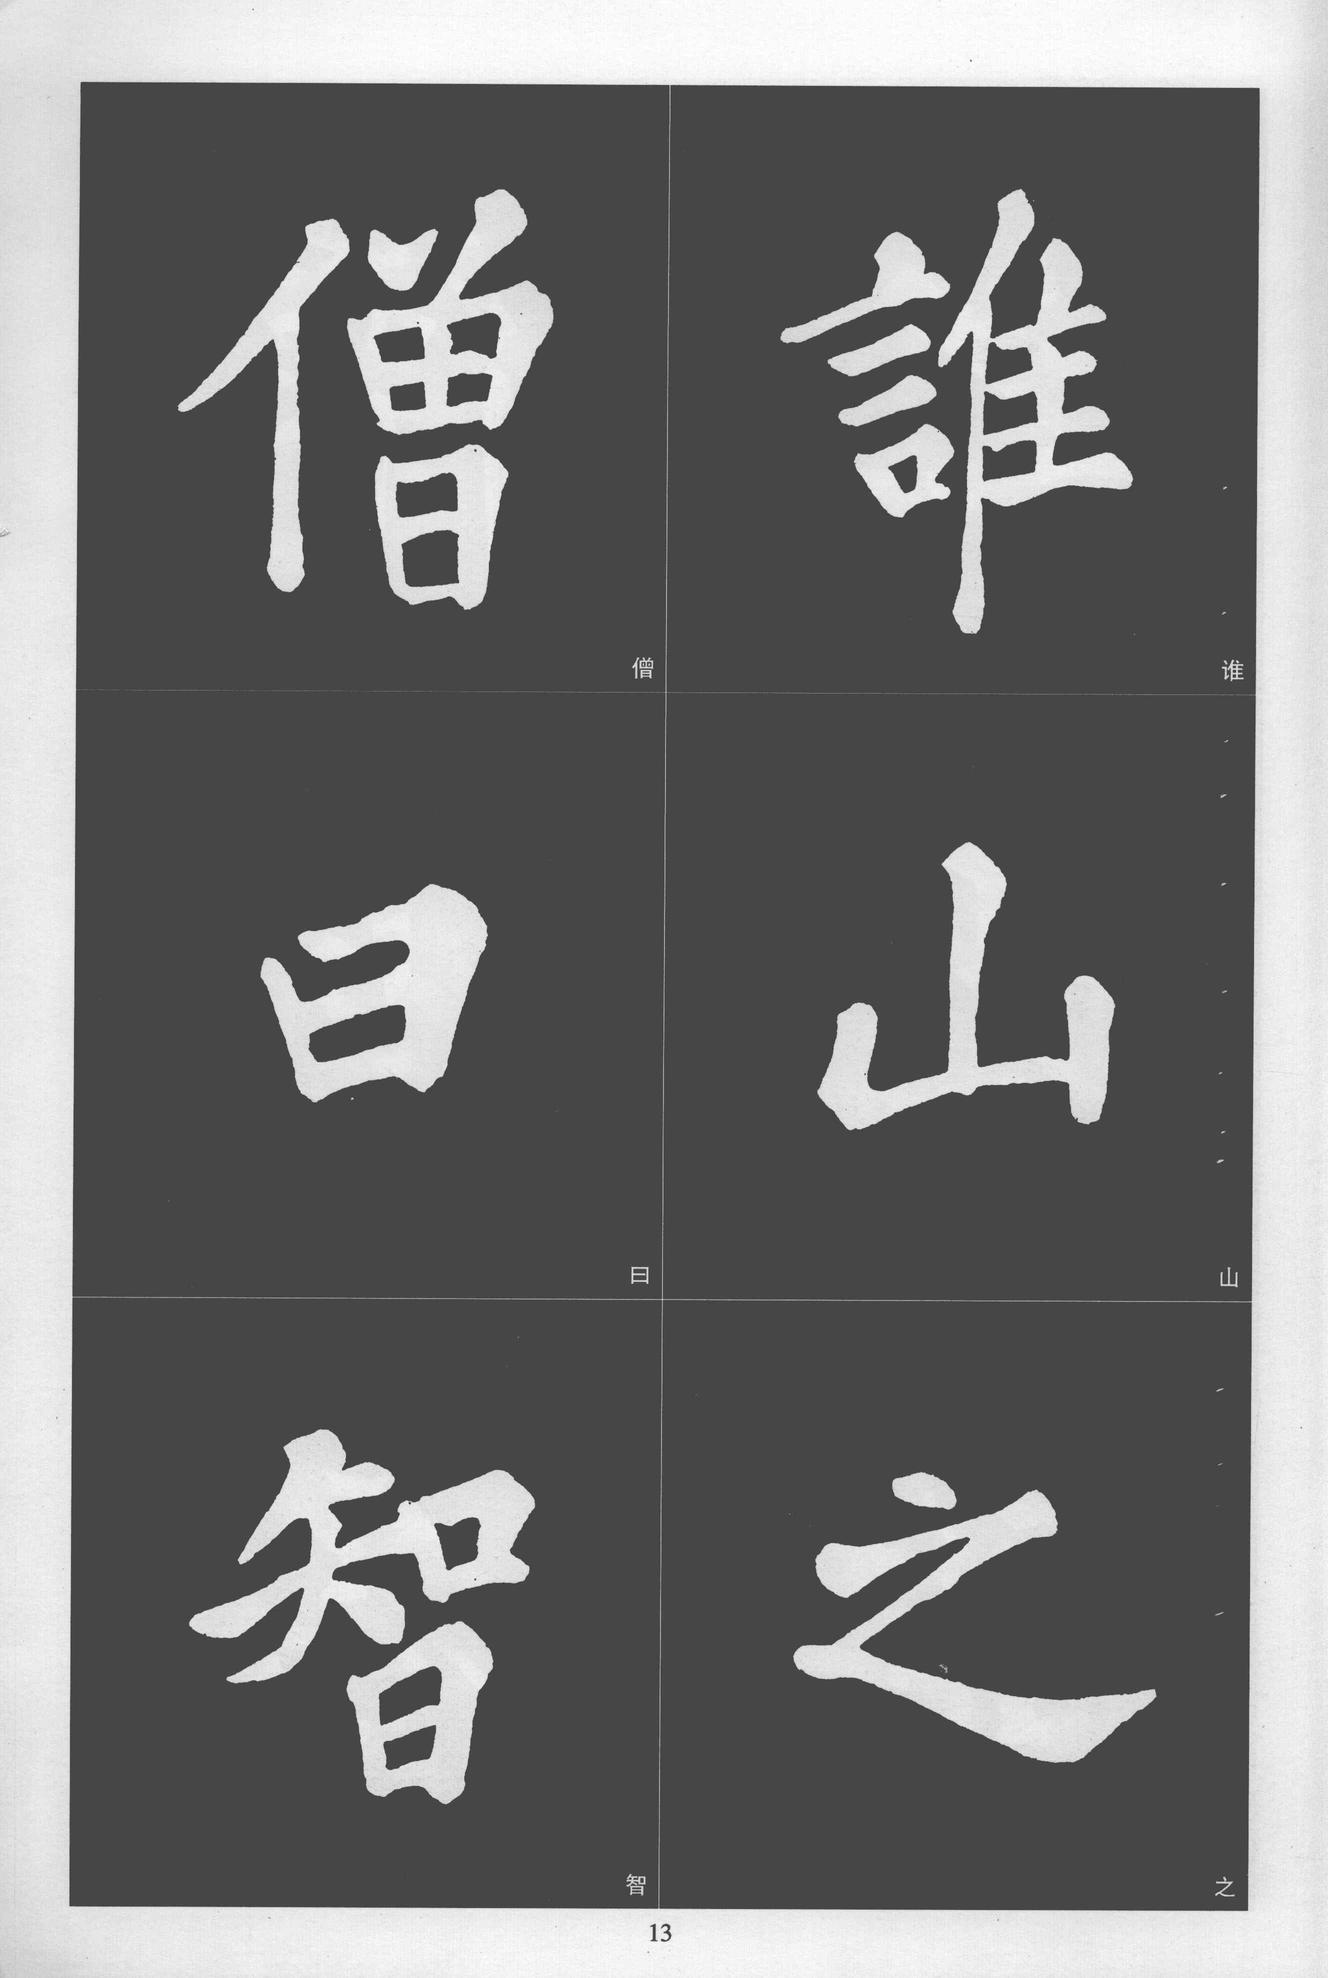 誰
谁
山
山
之
之
僧
僧
曰
曰
智
智
13